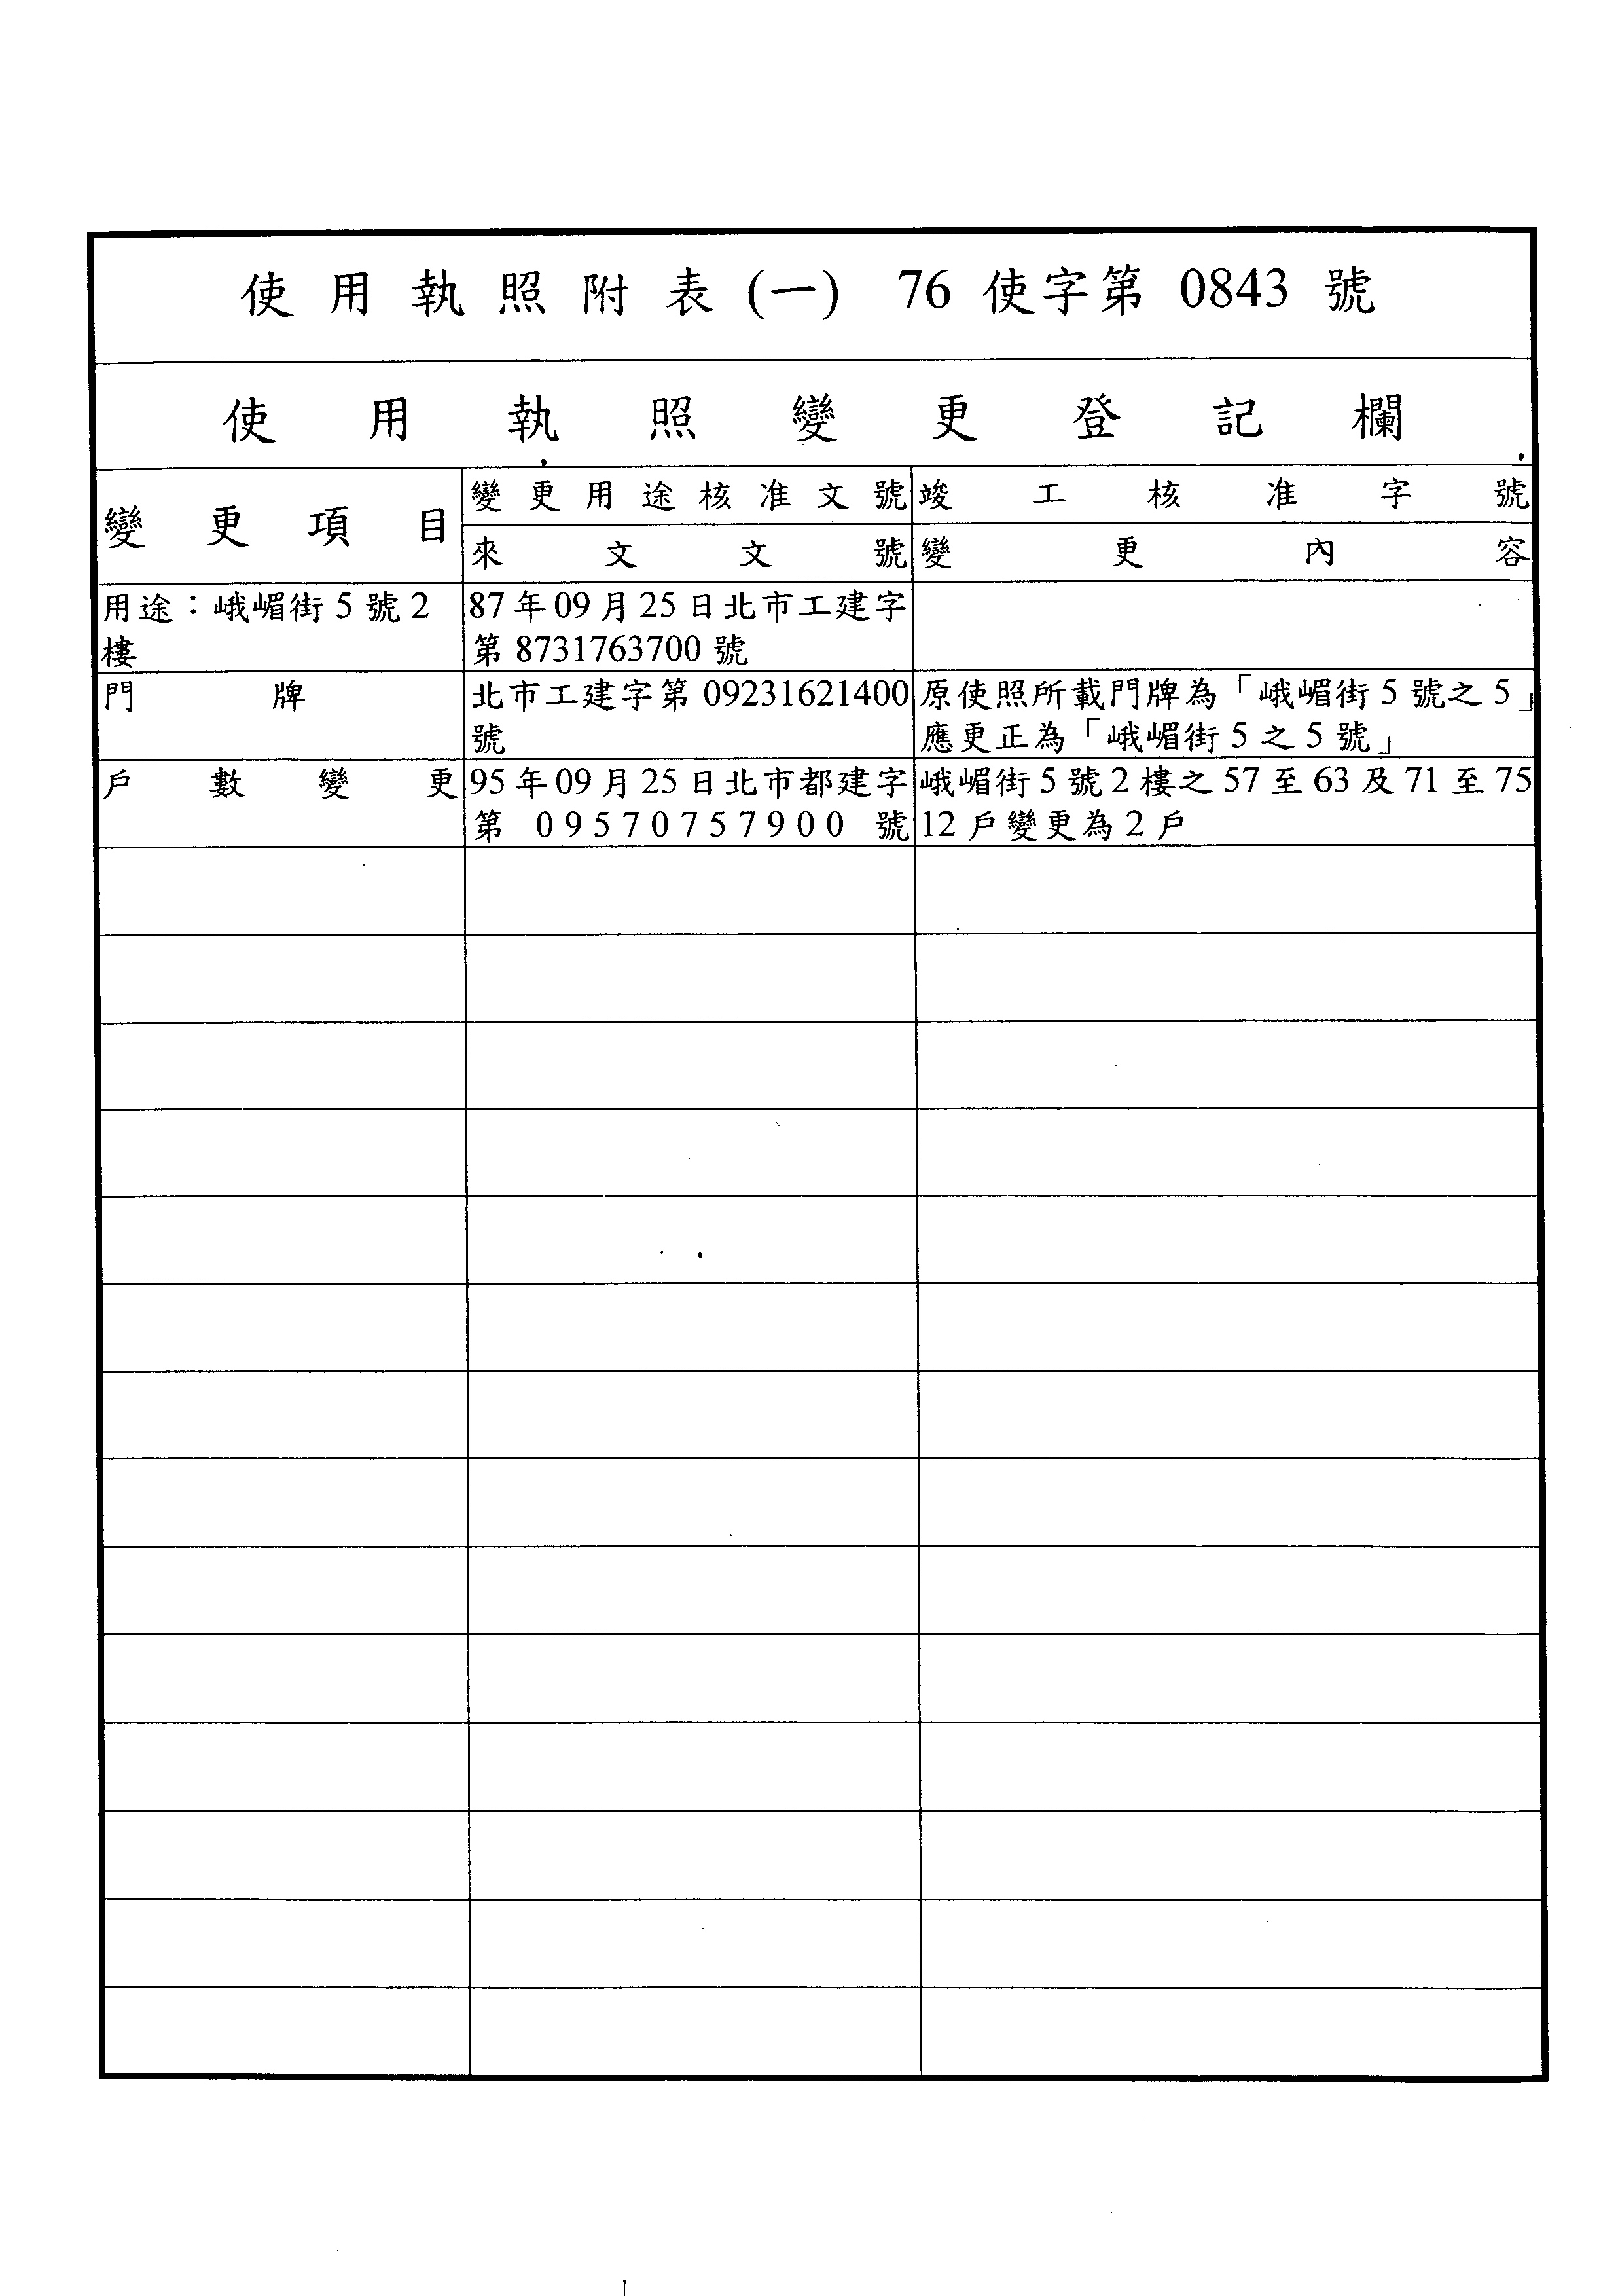 使用執照附表(一) 76使字第 0843 號
使用執照變更登記欄
變更項目
變更用途核准文號
竣工核准字號
來文文號
變更內容
用途：峨嵋街5號2
樓
87年09月25日北市工建字
第8731763700號
門牌
北市工建字第09231621400
號
原使照所載門牌為「峨嵋街5號之5」
應更正為「峨嵋街5之5號」
戶數變更
95年09月25日北市都建字
第09570757900號
峨嵋街5號2樓之57至63及71至75
12戶變更為2戶